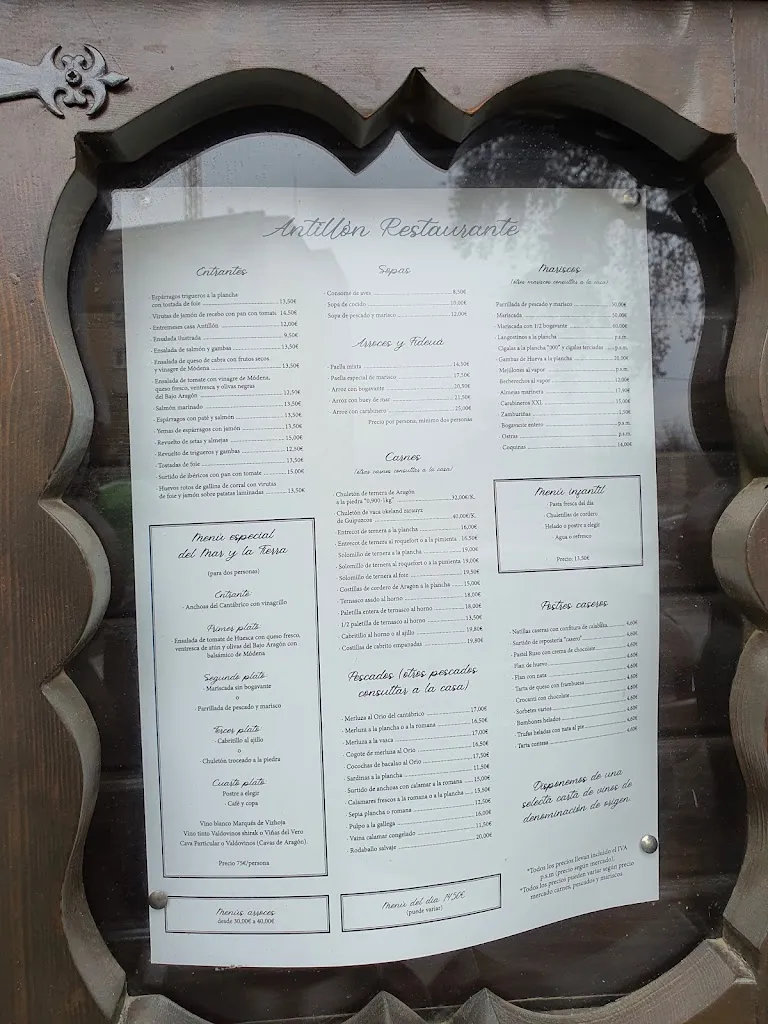 Antillón Restaurante
Entrantes
· Espárragos trigueros a la plancha
con tostada de foie 13,50€
· Virutas de jamón de recebo con pan con tomate 14,50€
· Entremeses casa Antillón 12,00€
· Ensalada ilustrada 9,50€
· Ensalada de salmón y gambas 13,50€
· Ensalada de queso de cabra con frutos secos
y vinagre de Módena 13,50€
· Ensalada de tomate con vinagre de Módena,
queso fresco, ventresca y olivas negras
del Bajo Aragón 12,50€
· Salmón marinado 13,50€
· Espárragos con paté y salmón 13,50€
· Yemas de espárragos con jamón 13,50€
· Revuelto de setas y almejas 15,00€
· Revuelto de trigueros y gambas 12,50€
· Tostadas de foie 13,50€
· Surtido de ibéricos con pan con tomate 15,00€
· Huevos rotos de gallina de corral con virutas
de foie y jamón sobre patatas laminadas 13,50€
Menú especial
del Mar y la Tierra
(para dos personas)
Entrante
· Anchoa del Cantábrico con vinagrillo
Primer plato
· Ensalada de tomate de Huesca con queso fresco,
ventresca de atún y olivas del Bajo Aragón con
balsámico de Módena
Segundo plato
· Mariscada sin bogavante
o
· Parrillada de pescado y marisco
Tercer plato
· Cabritillo al ajillo
o
· Chuletón troceado a la piedra
Cuarto plato
· Postre a elegir
· Café y copa
Vino blanco Marqués de Vizhoja
Vino tinto Valdovinos shirak o Viñas del Vero
Cava Particular o Valdovinos (Cavas de Aragón).
Precio 75€/persona
Menús arroces
desde 30,00€ a 40,00€
Sopas
· Consomé de aves 8,50€
· Sopa de cocido 10,00€
· Sopa de pescado y marisco 12,00€
Arroces y Fideuá
· Paella mixta 14,50€
· Paella especial de marisco 17,50€
· Arroz con bogavante 20,50€
· Arroz con buey de mar 21,50€
· Arroz con carabinero 25,00€
Precio por persona, mínimo dos personas
Carnes
(otras carnes consultar a la casa)
· Chuletón de ternera de Aragón
a la piedra "0,900-1kg" 32,00€/K.
· Chuletón de vaca
de Guipozcoa 40,00€/K.
· Entrecot de ternera a la plancha 16,00€
· Entrecot de ternera al roquefort o a la pimienta 16,50€
· Solomillo de ternera a la plancha 19,00€
· Solomillo de ternera al roquefort o a la pimienta 19,00€
· Solomillo de ternera al foie 19,50€
· Costillas de cordero de Aragón a la plancha 15,00€
· Ternasco asado al horno 18,00€
· Paletilla entera de ternasco al horno 18,00€
· 1/2 paletilla de ternasco al horno 13,50€
· Cabritillo al horno o al ajillo 19,80€
· Costillas de cabrito empanadas 19,80€
Pescados (otros pescados
consultar a la casa)
· Merluza al Orio del cantábrico 17,00€
· Merluza a la plancha o a la romana 16,50€
· Merluza a la vasca 17,00€
· Cogote de merluza al Orio 16,50€
· Cocochas de bacalao al Orio 17,50€
· Sardinas a la plancha 11,50€
· Surtido de anchoas con calamar a la romana 15,00€
· Calamares frescos a la romana o a la plancha 13,50€
· Sepia plancha o romana 12,50€
· Pulpo a la gallega 16,00€
· Vaina calamar congelado 11,50€
· Rodaballo salvaje 20,00€
Menú del día 14,50€
(puede variar)
Mariscos
(otros mariscos consultar a la casa)
· Parrillada de pescado y marisco
· Mariscada
· Mariscada con 1/2 bogavante
· Langostinos a la plancha p.s.m.
· Cigalas a la plancha "300" y cigalas terciadas p.s.m.
· Gambas de Hueva a la plancha
· Mejillones al vapor p.s.m.
· Berberechos al vapor 12,00€
· Almejas marinera 17,90€
· Carabineros XXL
· Zamburiñas
· Bogavante entero p.s.m.
· Ostras p.s.m.
· Coquinas 14,00€
Menú infantil
· Pasta fresca del día
· Chuletillas de cordero
Helado o postre a elegir
Agua o refresco
Precio: 13,50€
Postres caseros
· Natillas caseras con confitura de calabaza 4,60€
· Surtido de repostería "casero" 4,60€
· Pastel Ruso con crema de chocolate 4,60€
· Flan de huevo 4,60€
· Flan con nata 4,60€
· Tarta de queso con frambuesa 4,60€
· Crocanti con chocolate 4,60€
· Sorbetes varios 4,60€
· Bombones helados 4,60€
· Trufas heladas con nata al pie 4,60€
· Tarta contesa 4,60€
Disponemos de una
selecta carta de vinos de
denominación de origen
*Todos los precios llevan incluido el IVA
p.s.m (precio según mercado).
*Todos los precios pueden variar según precio
mercado carnes, pescados y mariscos